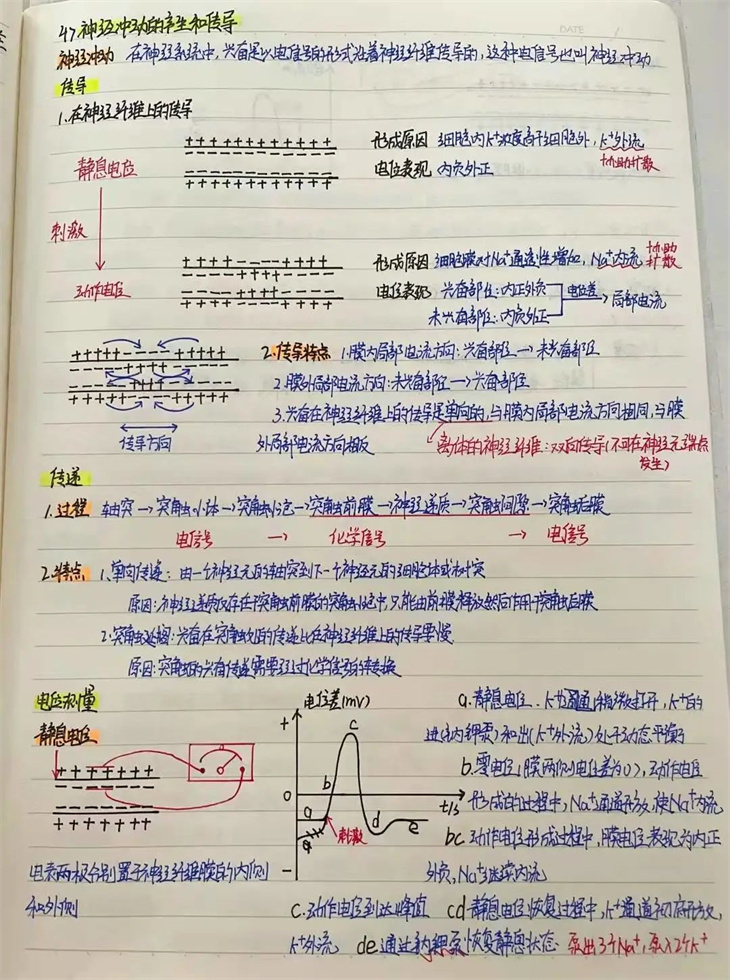 4.7神经冲动的产生和传导
DATE /
神经冲动 在神经系统中，兴奋是以电信号的形式沿着神经纤维传导的，这种电信号也叫神经冲动
传导
1.在神经纤维上的传导
+++++++++++ 形成原因 细胞内K⁺浓度高于细胞外，K⁺外流
协助扩散
静息电位 电位表现 内负外正
刺激
++++----++++ 形成原因 细胞膜对Na⁺通透性增加，Na⁺内流 协助扩散
动作电位 电位表现 兴奋部位：内正外负
电位差→局部电流
未兴奋部位：内负外正
2.传导特点 1.膜内局部电流方向：兴奋部位→未兴奋部位
2.膜外局部电流方向：未兴奋部位→兴奋部位
3.兴奋在神经纤维上的传导是单向的，与膜内局部电流方向相同，与膜
传导方向 外局部电流方向相反 离体的神经纤维：双向传导（不可在神经元端点发生）
传递
1.过程 轴突→突触小体→突触小泡→突触前膜→神经递质→突触间隙→突触后膜
电信号 → 化学信号 → 电信号
2.特点 1.单向传递：由一个神经元的轴突到下一个神经元的细胞体或树突
原因：神经递质仅存于突触前膜的突触小泡中，只能由前膜释放然后作用于突触后膜
2.突触延搁：兴奋在突触处的传递比在神经纤维上的传导要慢
原因：突触处的兴奋传递需要经过化学信号的转换
电位测量
静息电位
电位差(mv)
+
0
-
a b c d e
t/s
刺激
电表两极分别置于神经纤维膜的内侧
和外侧
a.静息电位．K⁺通道稍微打开，K⁺的
进(钠钾泵)和出(K⁺外流)处于动态平衡
b.零电位(膜两侧电位差为0)，动作电位
形成的过程中，Na⁺通道开放，使Na⁺内流
bc 动作电位形成过程中，膜电位表现为内正
外负，Na⁺继续内流
c.动作电位到达峰值 cd 静息电位恢复过程中，K⁺通道彻底开放，
K⁺外流 de 通过钠钾泵恢复静息状态．泵出3个Na⁺，泵入2个K⁺